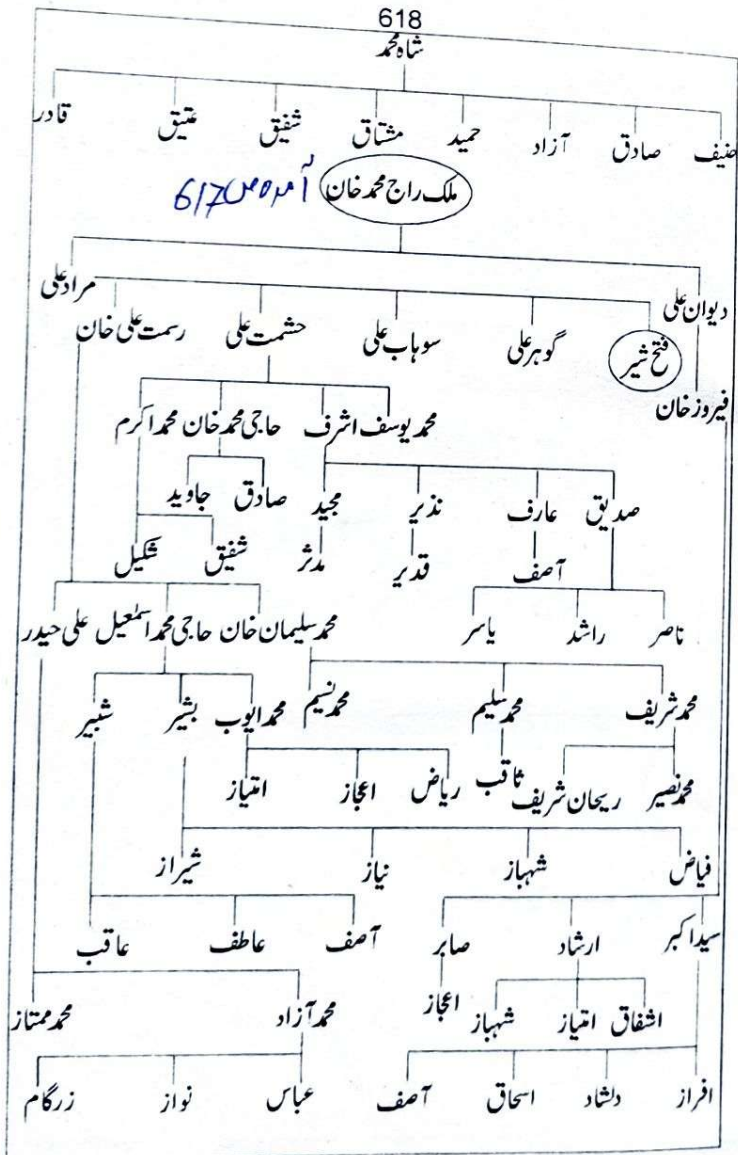 618
شاہ محمد
حنیف صادق آزاد حمید مشتاق شفیق عتیق قادر
ملک راج محمد خان آمدہ ص 617
دیوان علی مراد علی
فتح شیر گوہر علی سوہاب علی حشمت علی رسمت علی خان
فیروز خان
محمد یوسف اشرف حاجی محمد خان محمد اکرم
صدیق عارف نذیر مجید صادق جاوید
آصف قدیر مدثر شفیق شکیل
ناصر راشد یاسر محمد سلیمان خان حاجی محمد اسمٰعیل علی حیدر
محمد شریف محمد سلیم محمد نسیم محمد ایوب بشیر شبیر
محمد نصیر ریحان شریف ثاقب ریاض اعجاز امتیاز
فیاض شہباز نیاز شیراز
سید اکبر ارشاد صابر آصف عاطف عاقب
اشفاق امتیاز شہباز اعجاز محمد آزاد محمد ممتاز
افراز دلشاد اسحاق آصف عباس نواز زرگام